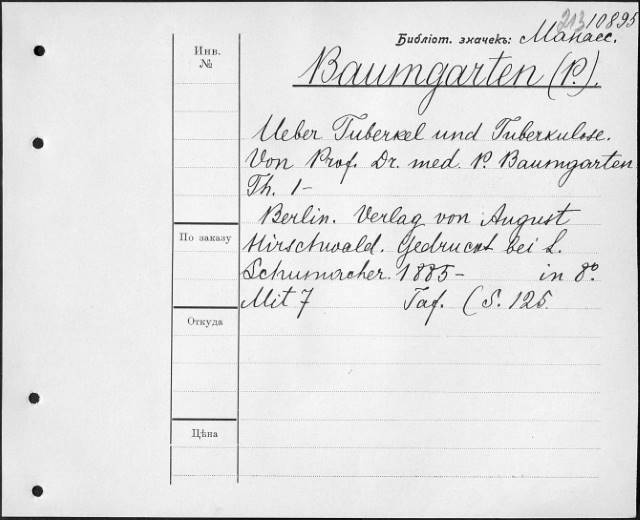 21310895
Библіот. значекъ: Манасс.
Инв.
№
Baumgarten (P.),
Ueber Tuberkel und Tuberkulose.
Von Prof. Dr. med. P. Baumgarten
Th. 1-
Berlin. Verlag von August
По заказу
Hirschwald. Gedruckt bei L.
Schumacher. 1885- in 8º.
Mit 7 Taf. (S. 125.
Откуда
Цѣна